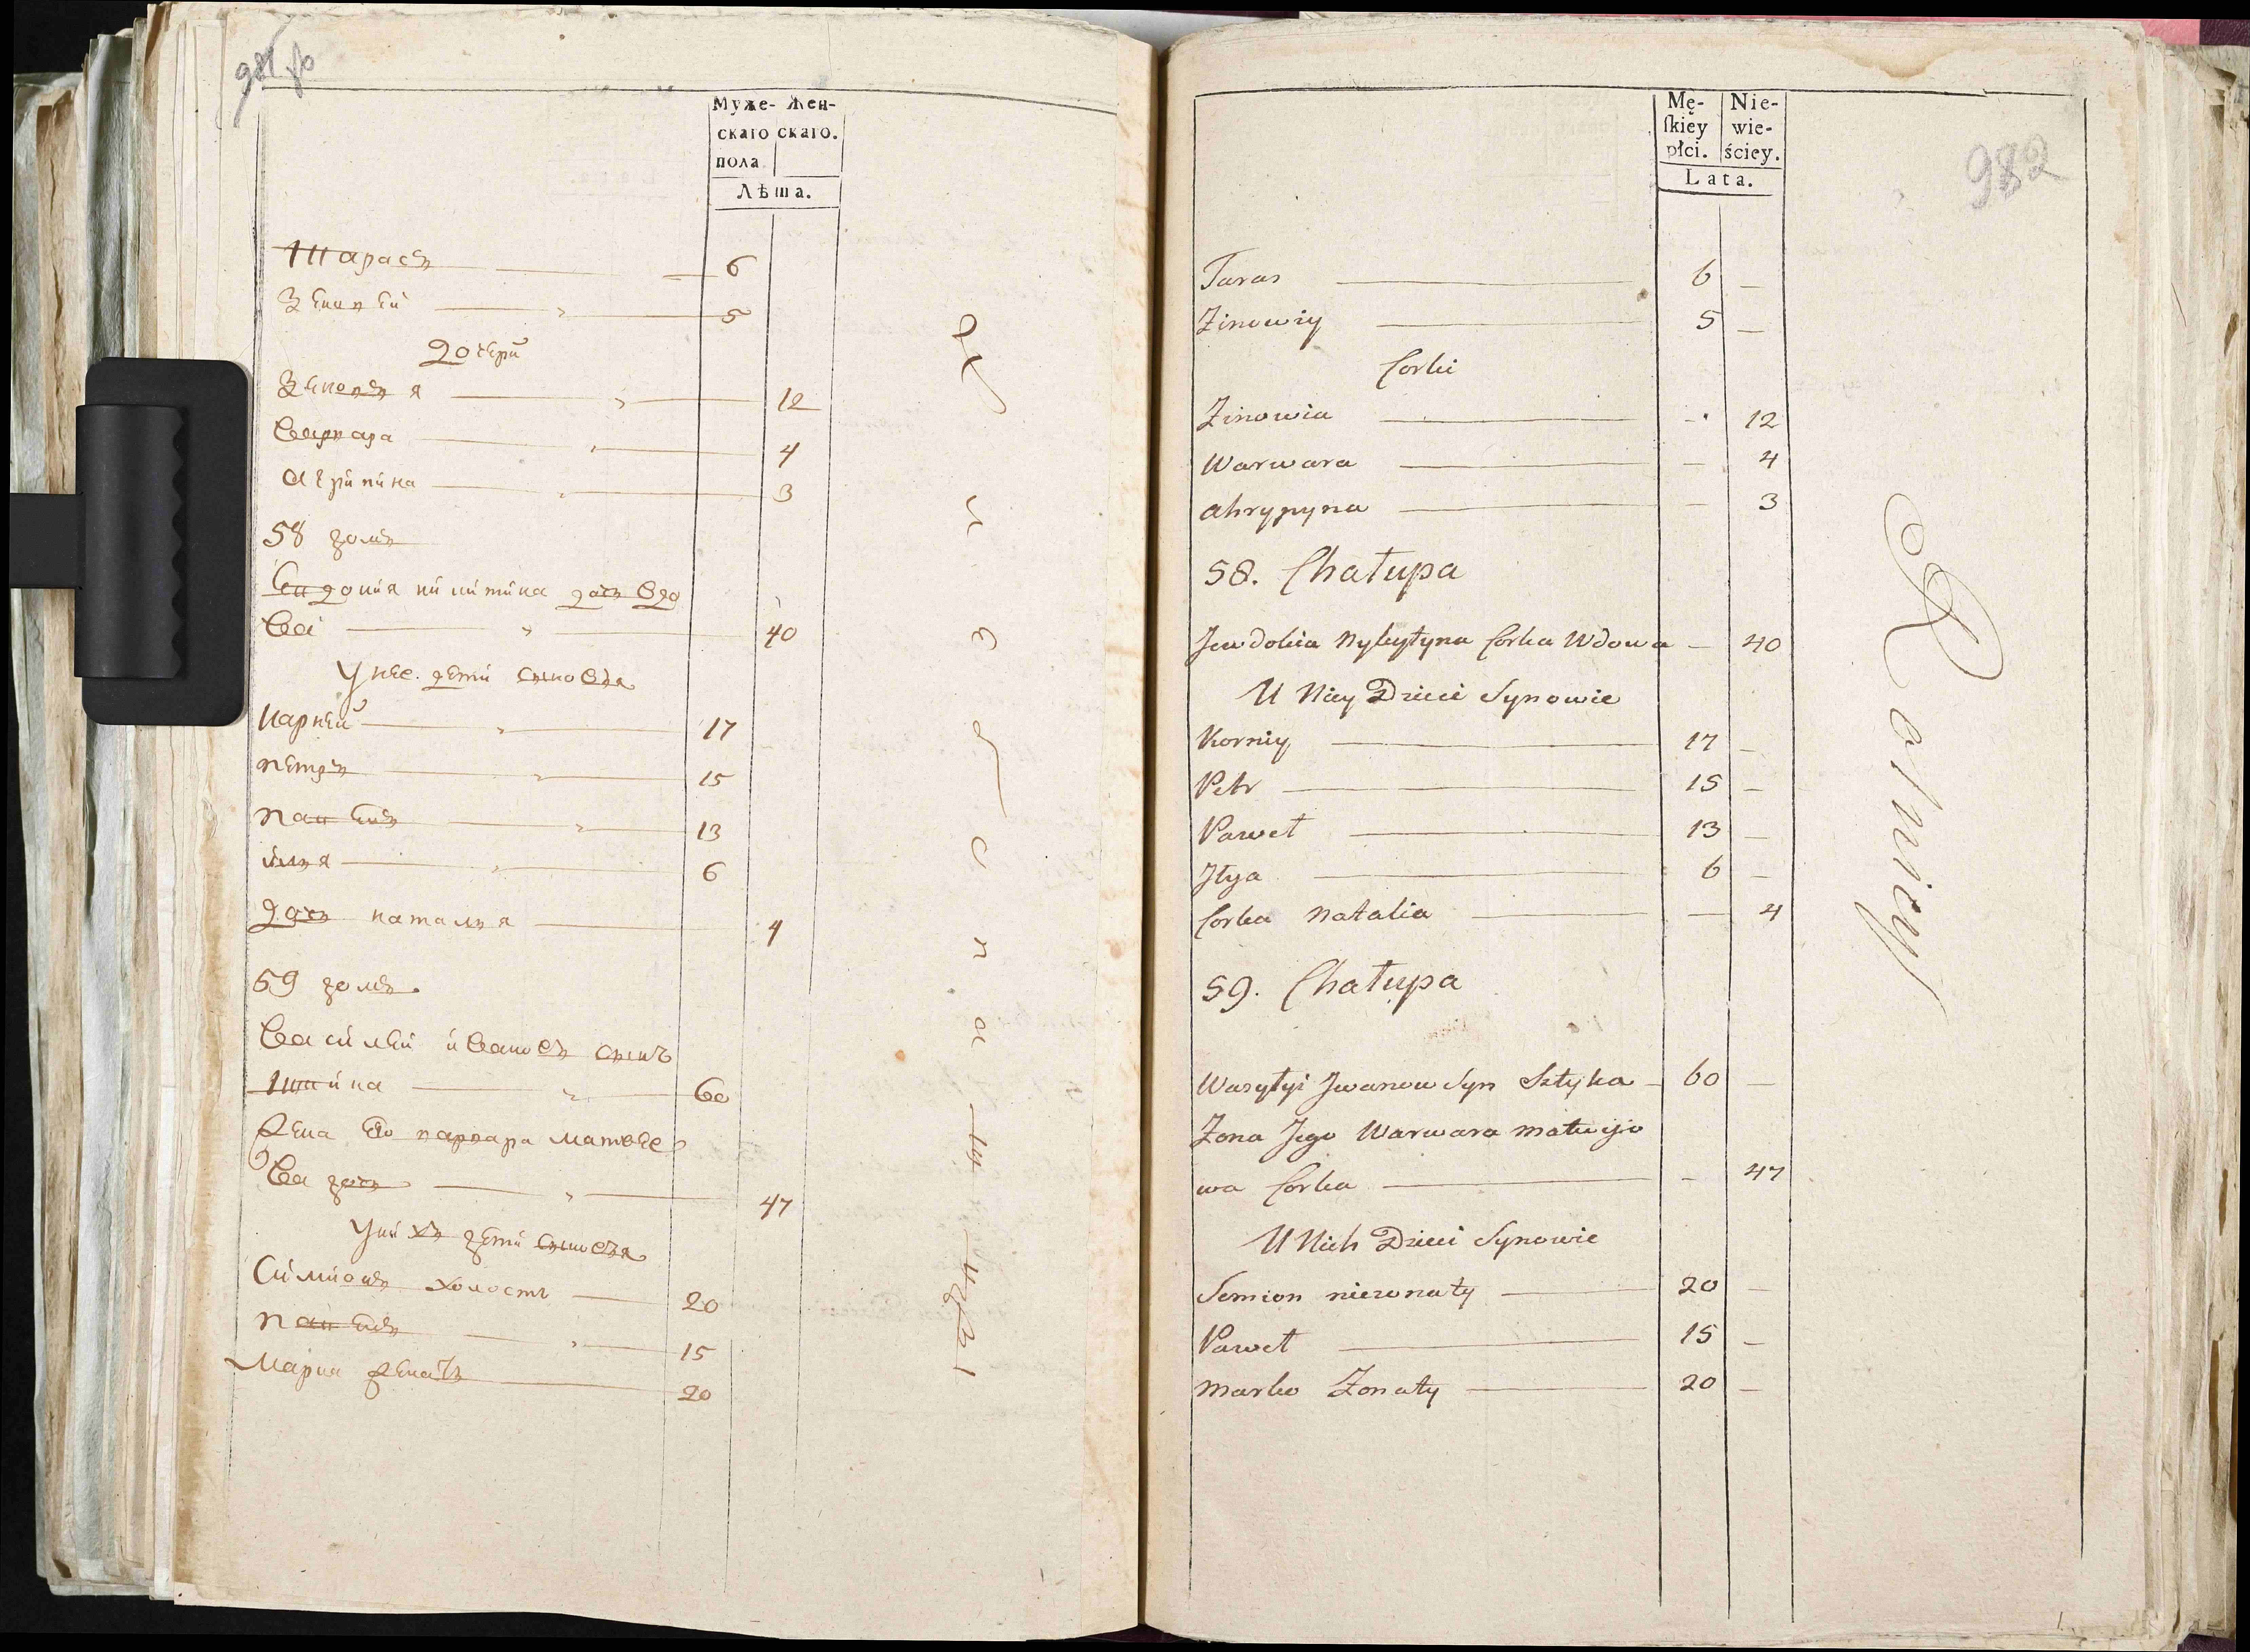 981 об
Муже- Жен-
скаго скаго.
пола
Лѣта.
Тарасъ 6
Зеновей 5
дочери
Зеновъя 12
Варвара 4
Агрипина 3
58 домъ
Евдокия никитина дочь вдо
ва 40
У нее дети сыновъя
Карней 17
петръ 15
павелъ 13
илья 6
дочь наталья 4
59 домъ
Василей ивановъ сынъ
Штика 60
Жена Его варвара матвее
ва дочь 47
У них дети сыновъя
Симионъ холостъ 20
павелъ 15
Марка женатъ 20
982
Mę- Nie-
skiey wie-
płci. ściey.
Lata.
Taras 6 —
Zinowiy 5 —
Corki
Zinowia - 12
Warwara — 4
Ahrypyna — 3
58. Chałupa
Jewdokia Nykytyna Corka Wdowa — 40
U Niey Dzieci Synowie
Korniy 17 —
Petr 15 —
Paweł 13 —
Jłya 6 —
Corka Natalia — 4
59. Chałupa
Wasyłyi Jwanow Syn Sztyka 60 —
Zona Jego Warwara Matwijo
wa Corka - 47
U Nich Dzieci Synowie
Semion niezonaty 20 —
Paweł 15 —
Marko Zonaty 20 —
Rolnicy